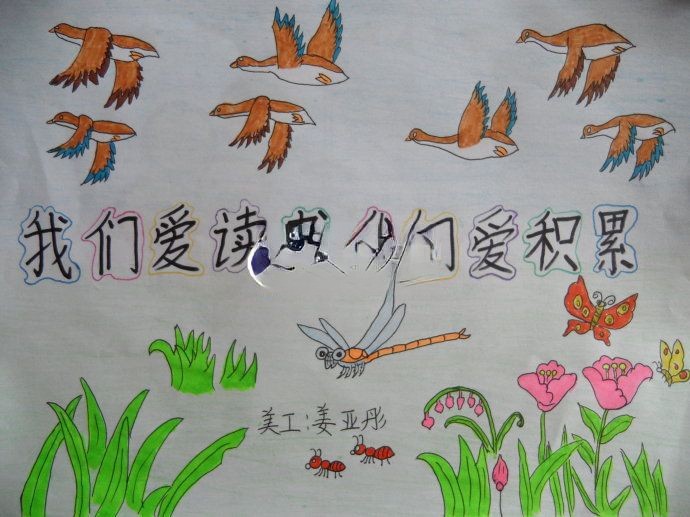 我们爱读们爱积累
美工:姜亚彤